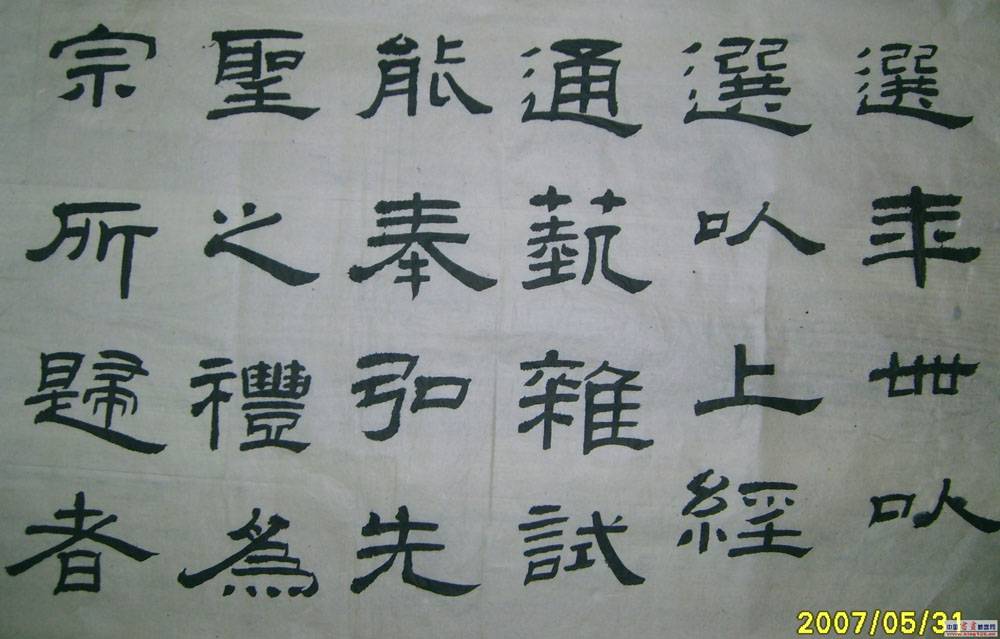 選年卌以
選以上經
通藝雜試
能奉弘先
聖之禮為
宗所歸者
2007/05/31